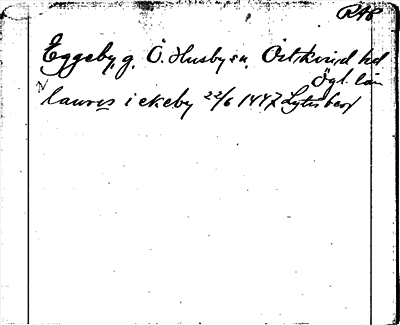 RAp
Eggeby, g. Ö. Husby sn. Östkind hd
Ögl. län
laurens i ekeby 22/6 1447